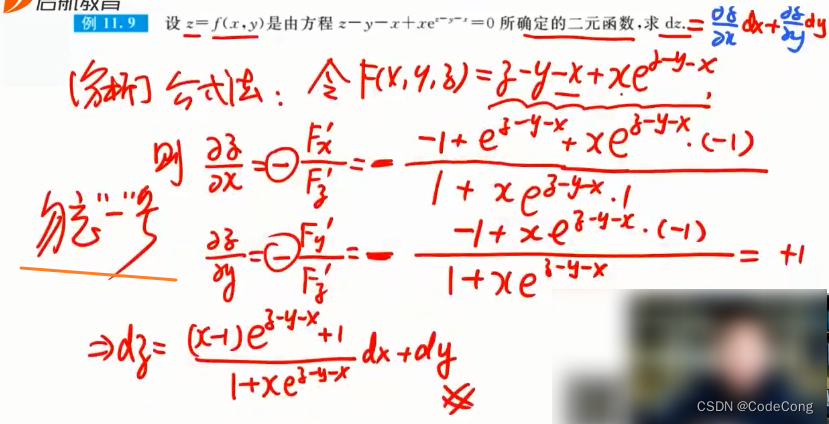 启航教育
例 11.9 设 z=f(x,y)是由方程 z-y-x+xe^{z-y-x}=0 所确定的二元函数,求 dz. = ∂z/∂x dx + ∂z/∂y dy
[分析] 公式法: 令 F(x,y,z) = z-y-x+xe^{z-y-x},
则 ∂z/∂x = - F'x/F'z = - (-1+e^{z-y-x}+xe^{z-y-x}·(-1))/(1+xe^{z-y-x}·1)
勿忘"-"号
∂z/∂y = - F'y/F'z = - (-1+xe^{z-y-x}·(-1))/(1+xe^{z-y-x}) = +1
⇒dz = ((x-1)e^{z-y-x}+1)/(1+xe^{z-y-x}) dx+dy
CSDN @CodeCong